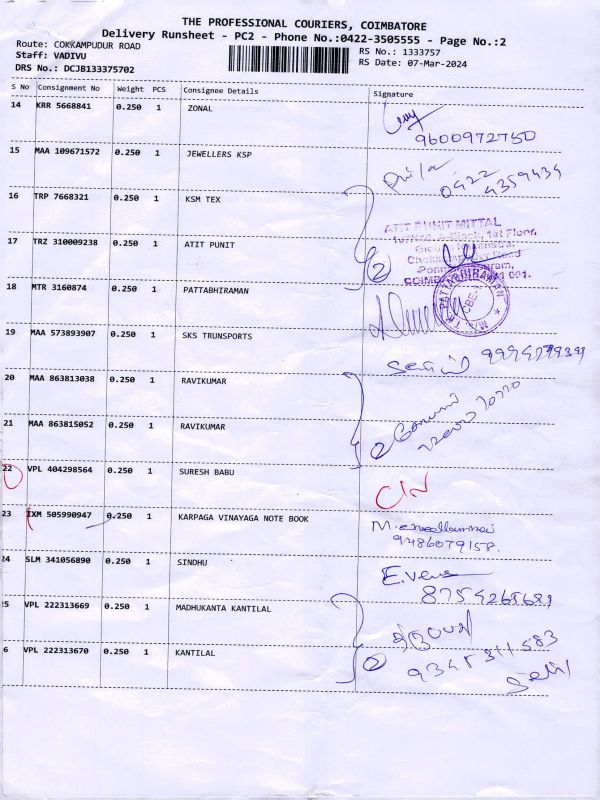 THE PROFESSIONAL COURIERS, COIMBATORE
Delivery Runsheet - PC2 - Phone No.:0422-3505555 - Page No.:2
Route: COKKAMPUDUR ROAD
RS No.: 1333757
Staff: VADIVU
RS Date: 07-Mar-2024
DRS No.: DCJB133375702
S No Consignment No Weight PCS Consignee Details Signature
14 KRR 5668841 0.250 1 ZONAL
9600972750
15 MAA 109671572 0.250 1 JEWELLERS KSP
0422
4359434
16 TRP 7668321 0.250 1 KSM TEX
ATIT PUNIT MITTAL
1st Floor,
17 TRZ 310009238 0.250 1 ATIT PUNIT
2
Road
001.
18 MTR 3160874 0.250 1 PATTABHIRAMAN
PATTABHIRAMAN
CBE
19 MAA 573893907 0.250 1 SKS TRUNSPORTS
20 MAA 863813038 0.250 1 RAVIKUMAR
21 MAA 863815052 0.250 1 RAVIKUMAR
2
22 VPL 404298564 0.250 1 SURESH BABU
23 IXM 505990947 0.250 1 KARPAGA VINAYAGA NOTE BOOK
9486079158.
24 SLM 341056890 0.250 1 SINDHU
5 VPL 222313669 0.250 1 MADHUKANTA KANTILAL
6 VPL 222313670 0.250 1 KANTILAL
2
9345311583